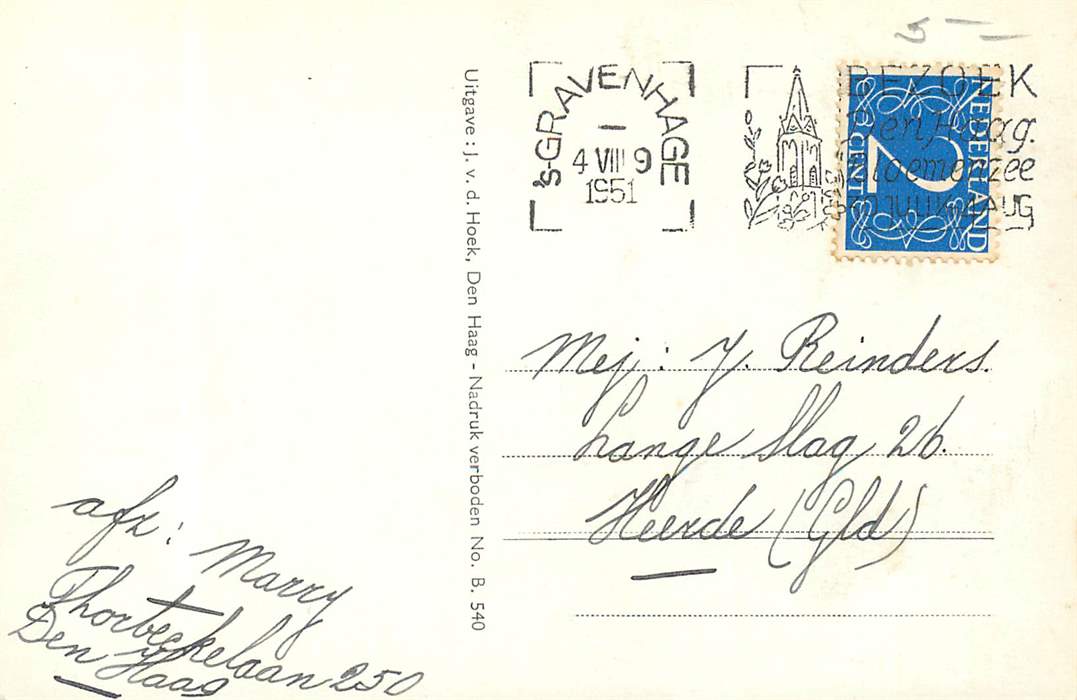 5 —
'S-GRAVENHAGE
4 VIII 9
1951
BEZOEK
Den Haag.
Bloemenzee
JULI-4 AUG
NEDERLAND
2
CENT
Uitgave : J. v. d. Hoek, Den Haag - Nadruk verboden No. B. 540
Mej: J. Reinders.
Lange Slag 26.
Heerde (Gld)
afz: Marry
Thorbeckelaan 250
Den Haag